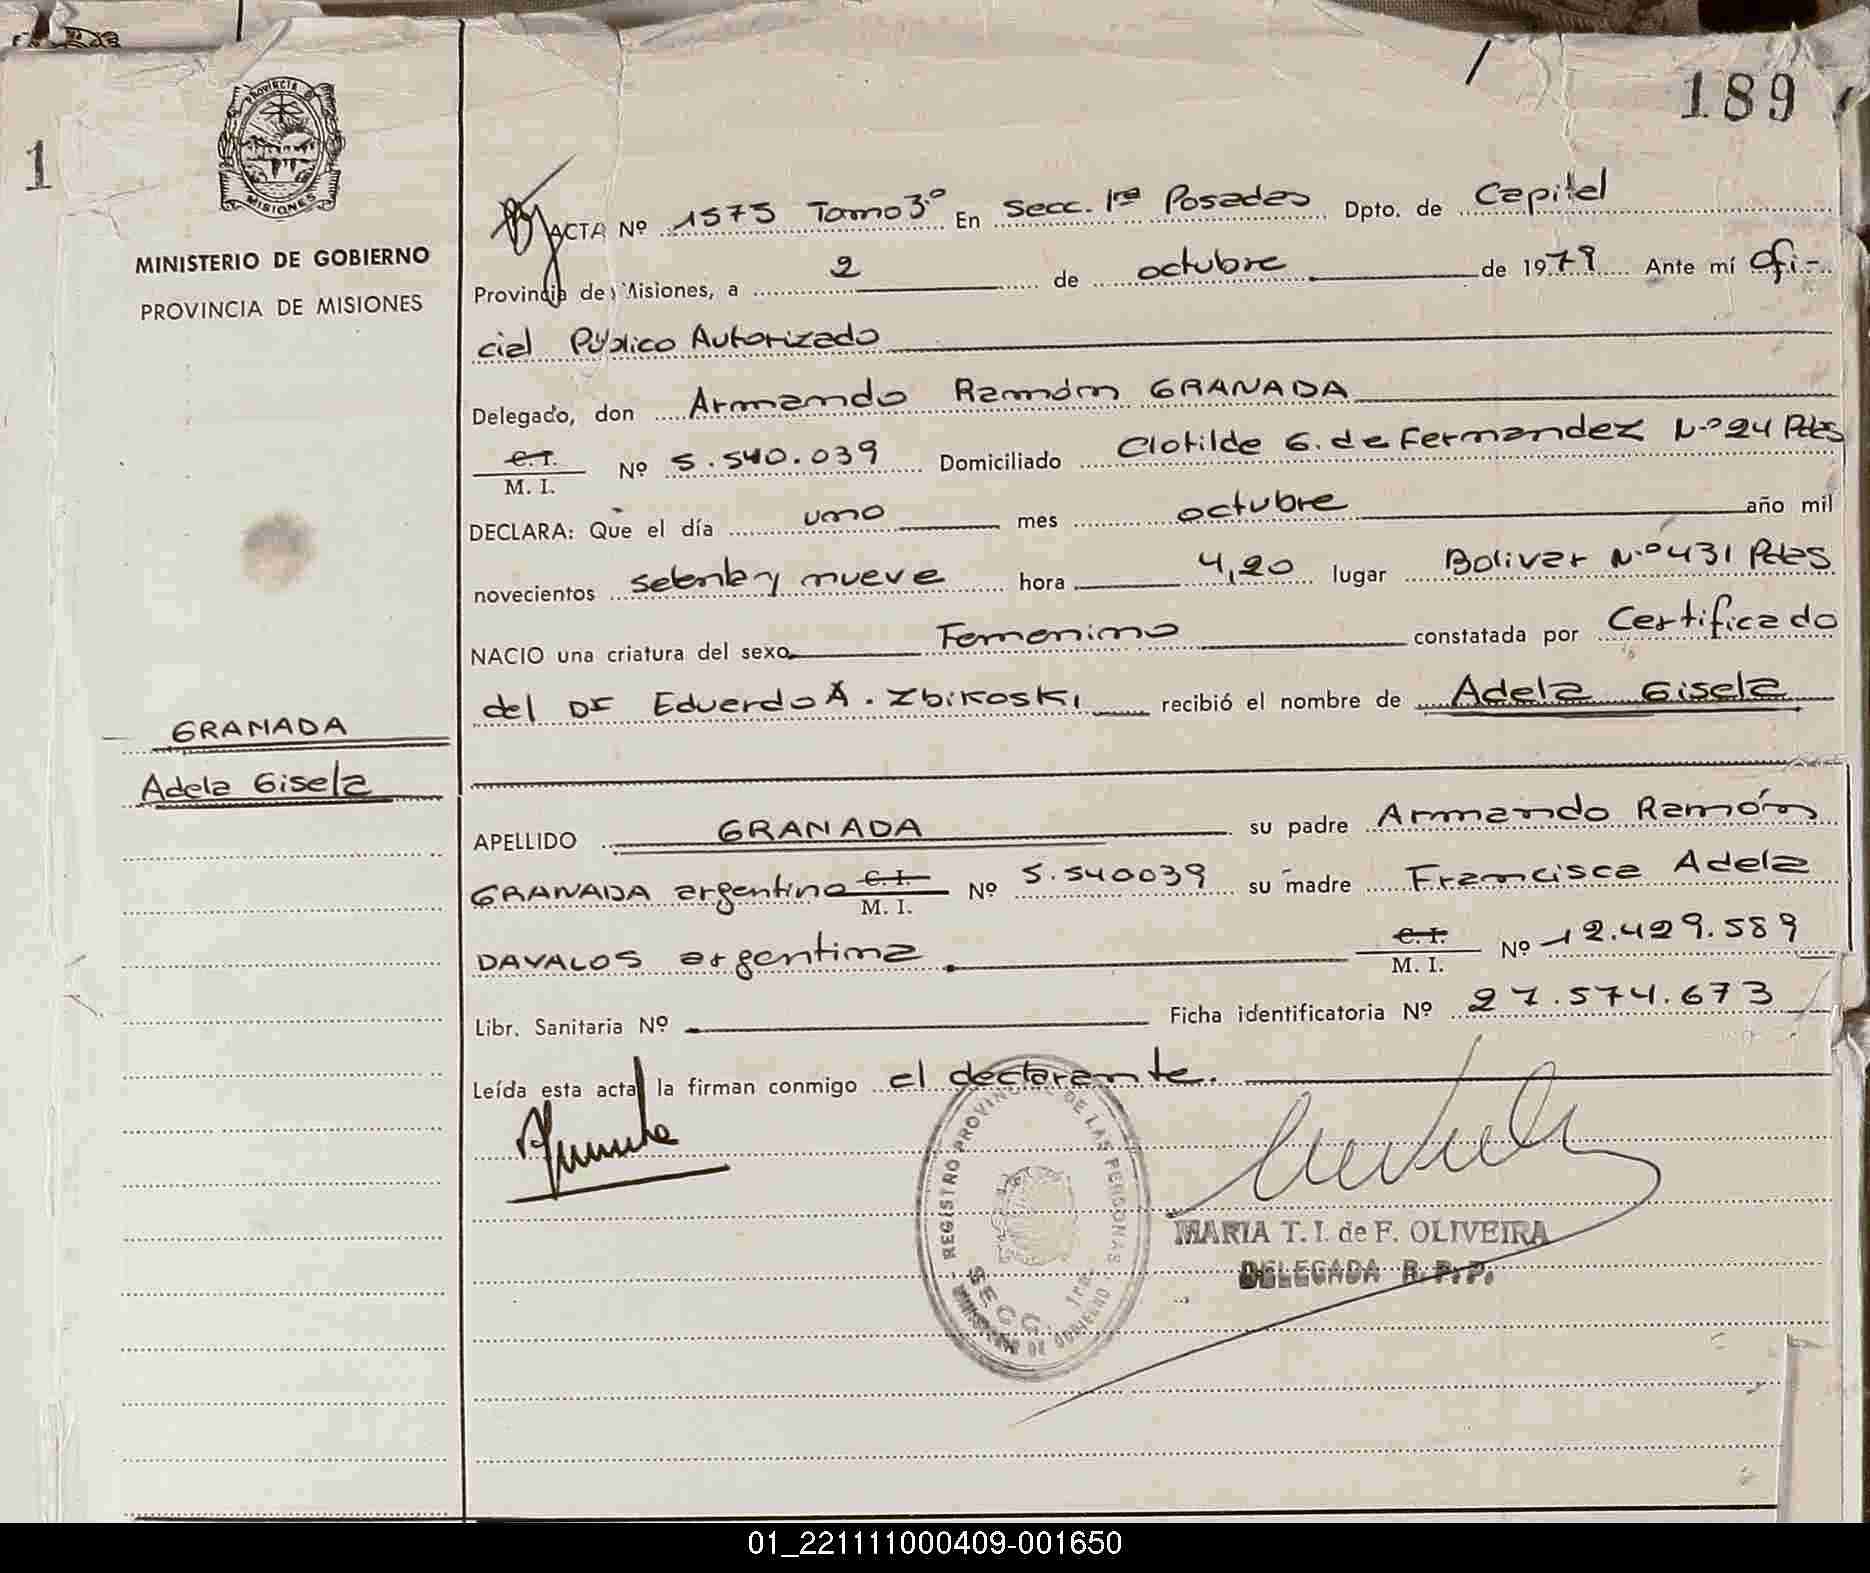 189
1
PROVINCIA DE
MISIONES
MINISTERIO DE GOBIERNO
PROVINCIA DE MISIONES
GRANADA
Adela Gisela
ACTA Nº 1575 Tomo 3º En Secc. 1ra Posadas Dpto. de Capital
Provincia de Misiones, a 2 de octubre de 1979 Ante mí Ofi-
cial Público Autorizado
Delegado, don Armando Ramón GRANADA
C.I.
M. I. Nº 5.540.039 Domiciliado Clotilde G. de Fernandez Nº 24 Pdas
DECLARA: Que el día uno mes octubre año mil
novecientos setenta y nueve hora 4,20 lugar Bolivar Nº 431 Pdas
NACIO una criatura del sexo Femenino constatada por Certificado
del Dr Eduardo A. Zbikoski recibió el nombre de Adela Gisela
APELLIDO GRANADA su padre Armando Ramón
GRANADA argentino C.I. M. I. Nº 5.540039 su madre Francisca Adela
DAVALOS argentina C.I. M. I. Nº 12.429.589
Libr. Sanitaria Nº Ficha identificatoria Nº 27.574.673
Leída esta acta la firman conmigo el declarante.
REGISTRO PROVINCIAL DE LAS PERSONAS
SECC. 1ra.
MINISTERIO DE GOBIERNO
MARIA T. I. de F. OLIVEIRA
DELEGADA R. P. P.
01_221111000409-001650